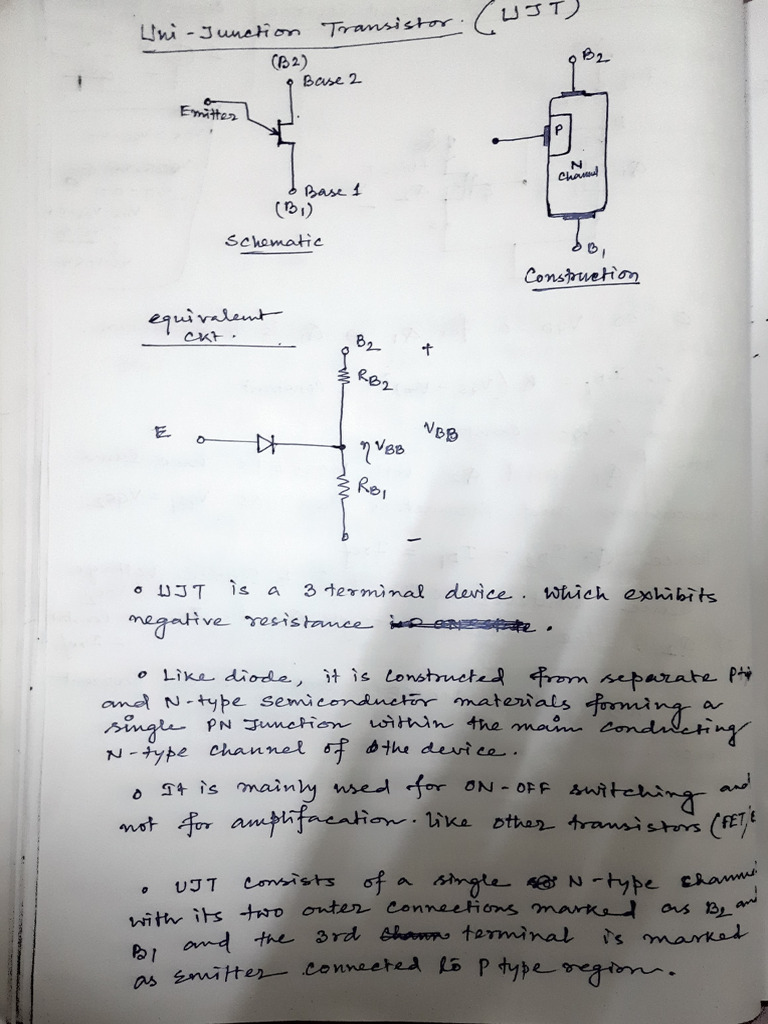 Uni-Junction Transistor. (UJT)
(B2)
Base 2
Emitter
Base 1
(B1)
Schematic
B2
P
N
Channel
B1
Construction
equivalent
CKT.
B2
+
RB2
E
ηVBB
VBB
RB1
-
• UJT is a 3 terminal device. Which exhibits
negative resistance .
• Like diode, it is constructed from separate
and N-type semiconductor materials forming a
single PN Junction within the main conducting
N-type channel of the device.
• It is mainly used for ON-OFF switching and
not for amplifacation. like other transistors (FET,
• UJT consists of a single N-type
with its two outer connections marked as B2 and
B1 and the 3rd terminal is marked
as Emitter connected to P type region.